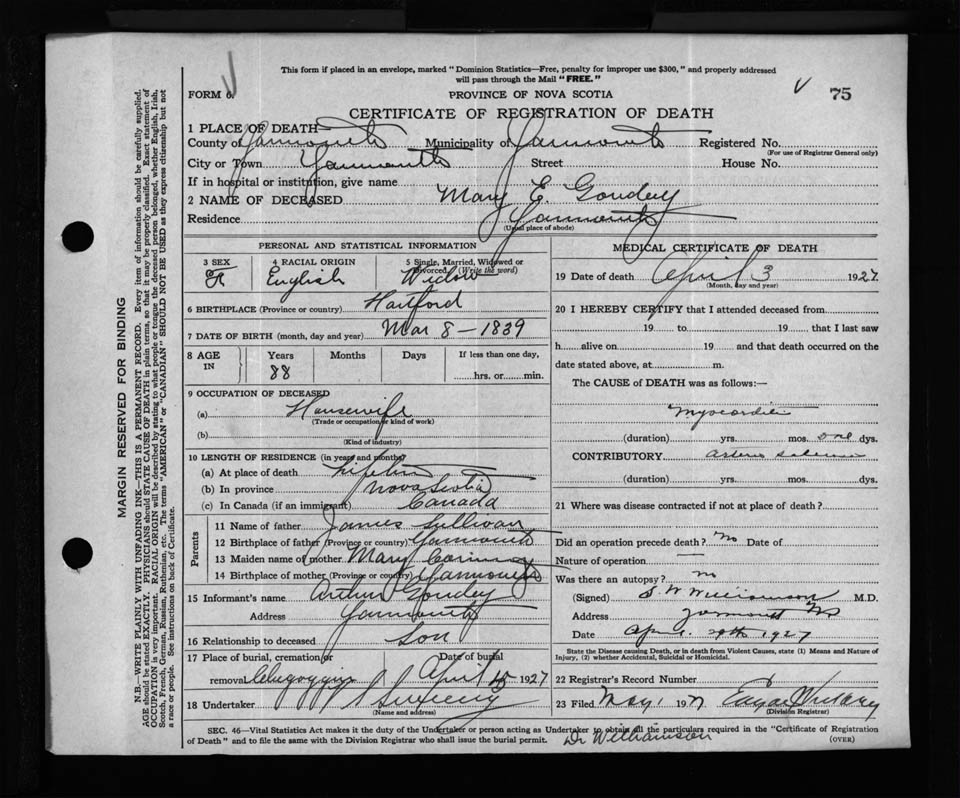 This form if placed in an envelope, marked "Dominion Statistics—Free, penalty for improper use $300," and properly addressed
will pass through the Mail "FREE."
FORM 6. PROVINCE OF NOVA SCOTIA 75
CERTIFICATE OF REGISTRATION OF DEATH
1 PLACE OF DEATH—
County of Yarmouth Municipality of Yarmouth Registered No.
(For use of Registrar General only)
City or Town Yarmouth Street House No.
If in hospital or institution, give name
2 NAME OF DECEASED Mary E. Goudey
Residence Yarmouth
(Usual place of abode)
MARGIN RESERVED FOR BINDING
N.B.—WRITE PLAINLY WITH UNFADING INK—THIS IS A PERMANENT RECORD. Every item of information should be carefully supplied.
AGE should be stated EXACTLY. PHYSICIANS should STATE CAUSE OF DEATH in plain terms, so that it may be properly classified. Exact statement of
OCCUPATION is very important. RACIAL ORIGIN will be described by stating to what people or tongue the deceased person belonged, whether English, Irish,
Scotch, French, German, Russian, Ruthenian, etc. The terms "AMERICAN" or "CANADIAN" SHOULD NOT BE USED as they express citizenship but not
a race or people. See instructions on back of Certificate.
PERSONAL AND STATISTICAL INFORMATION
3 SEX 4 RACIAL ORIGIN 5 Single, Married, Widowed or
Divorced. (Write the word)
F English Widow
6 BIRTHPLACE (Province or country) Hartford
7 DATE OF BIRTH (month, day and year) Mar 8 - 1839
8 AGE IN Years Months Days If less than one day,
88 hrs. or min.
9 OCCUPATION OF DECEASED
(a) Housewife
(Trade or occupation or kind of work)
(b)
(Kind of industry)
10 LENGTH OF RESIDENCE (in years and months)
(a) At place of death Lifetime
(b) In province Nova Scotia
(c) In Canada (if an immigrant) Canada
Parents
11 Name of father James Sullivan
12 Birthplace of father (Province or country) Yarmouth
13 Maiden name of mother Mary
14 Birthplace of mother (Province or country) Yarmouth
15 Informant's name Arthur Goudey
Address Yarmouth
16 Relationship to deceased Son
17 Place of burial, cremation or Date of burial
removal Chegoggin April 5 1927
18 Undertaker Sweeny
(Name and address)
MEDICAL CERTIFICATE OF DEATH
19 Date of death April 3 1927
(Month, day and year)
20 I HEREBY CERTIFY that I attended deceased from
19 to 19 that I last saw
h alive on 19 and that death occurred on the
date stated above, at m.
The CAUSE of DEATH was as follows:—
Myocarditis
(duration) yrs. mos. one dys.
CONTRIBUTORY arterio sclerosis
(duration) yrs. mos. dys.
21 Where was disease contracted if not at place of death?
Did an operation precede death? no Date of
Nature of operation —
Was there an autopsy? no
(Signed) S. W. Williamson M.D.
Address Yarmouth NS
Date April 29th 1927
State the Disease causing Death, or in death from Violent Causes, state (1) Means and Nature of
Injury, (2) whether Accidental, Suicidal or Homicidal.
22 Registrar's Record Number
23 Filed May 1 1927
(Division Registrar)
SEC. 46—Vital Statistics Act makes it the duty of the Undertaker or person acting as Undertaker to obtain all the particulars required in the "Certificate of Registration
of Death" and to file the same with the Division Registrar who shall issue the burial permit. Dr Williamson (OVER)